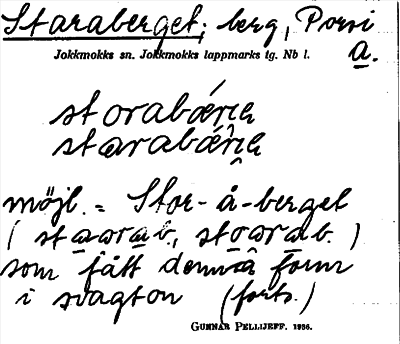 Staraberget; berg, Porsi
Jokkmokks sn. Jokkmokks lappmarks tg. Nb l. a.
storabǽrɪɕ
starabǽrɪɕ
möjl. = Stor-å-berget
( starab., storab. )
som fått denna form
i svagton (forts.)
GUNNAR PELLIJEFF. 1956.